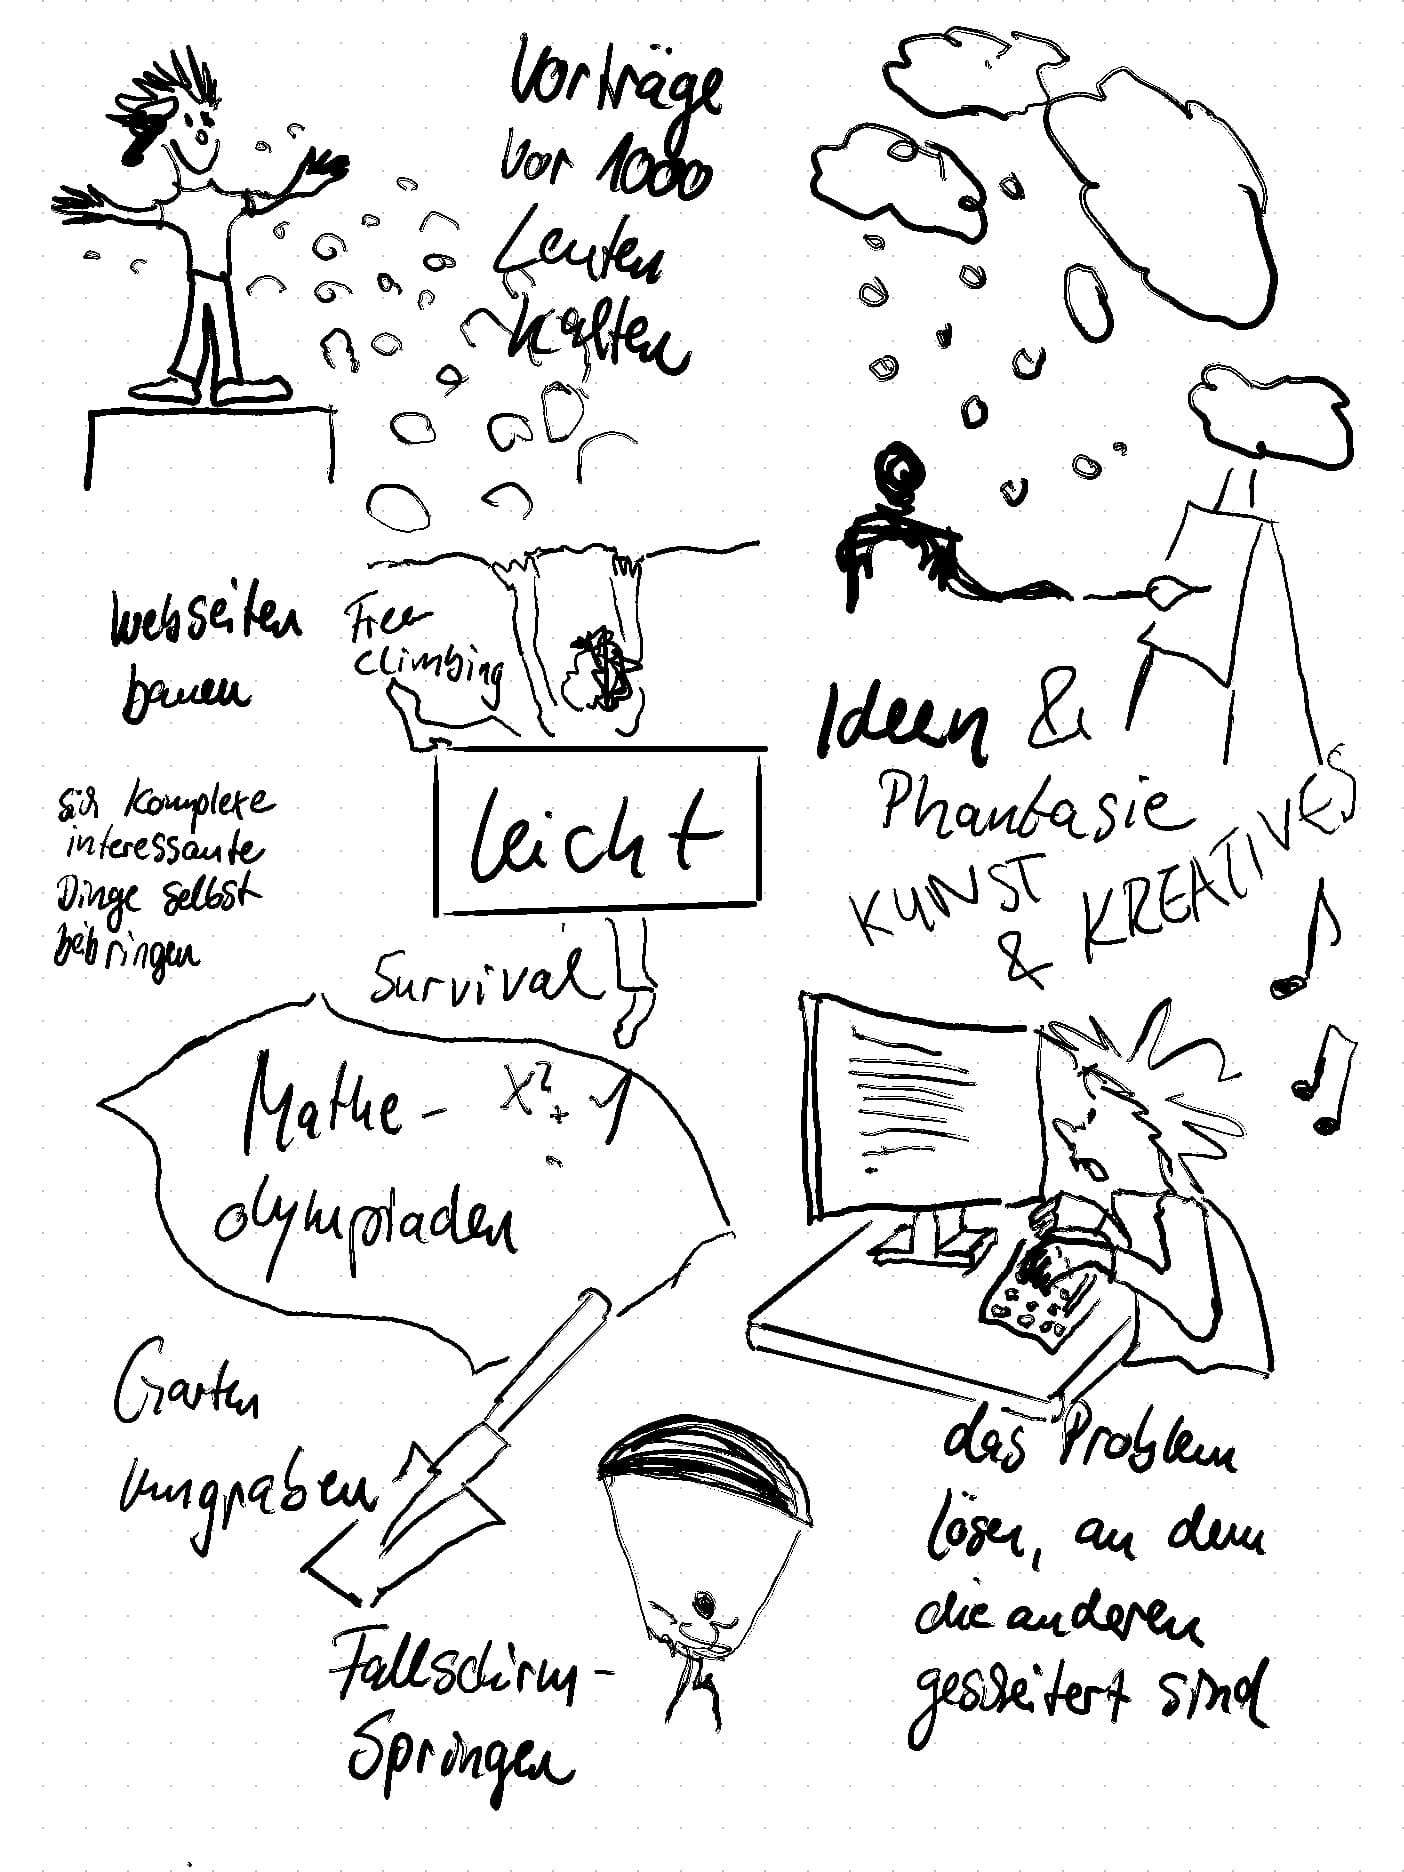 Vorträge
vor 1000
Leuten
halten
Webseiten
bauen
Free
climbing
sich komplexe
interessante
Dinge selbst
beibringen
leicht
Survival
Ideen &
Phantasie
KUNST
&
KREATIVES
Mathe-
olympiaden
x² + 1
Garten
umgraben
Fallschirm-
Springen
das Problem
lösen, an dem
die anderen
gescheitert sind